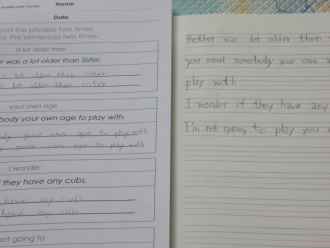 Name
Date
the phrases two times.
the sentences two times.
a lot older than
er was a lot older than Sister.
a lot older than Sister
a lot older than Sister
your own age
body your own age to play with.
body your own age to play with
your own age to play with
I wonder
f they have any cubs.
they have any cubs.
have any cubs.
not going to
was lot older than
you need somebody your own a
play with
I wonder if they have any
I'm not going to play your